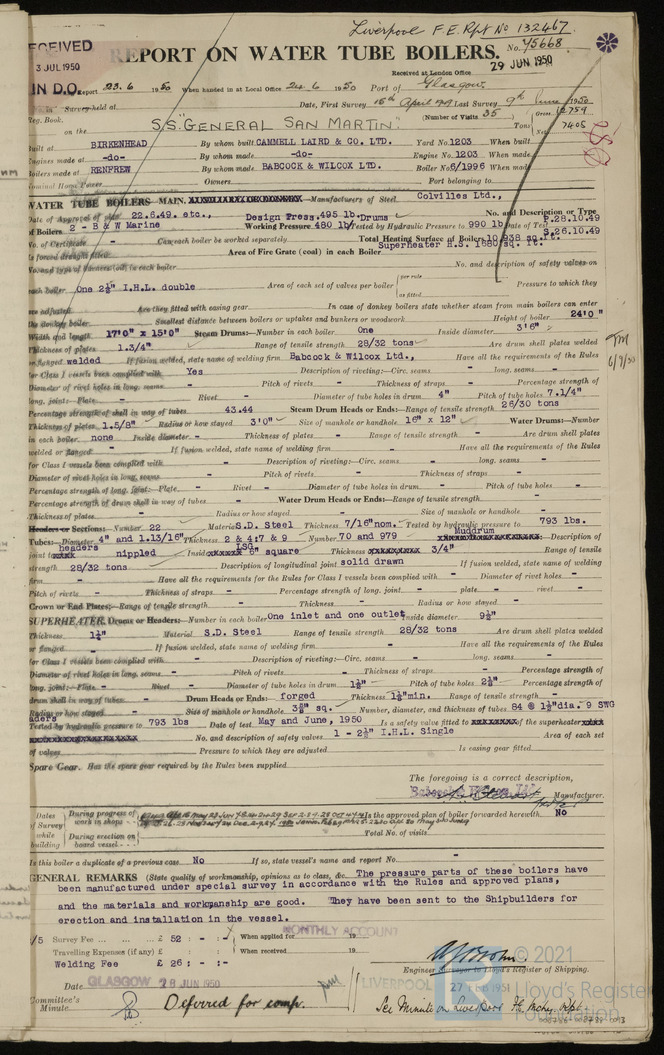 Liverpool F.E. Rpt No 132467.
RECEIVED
3 JUL 1950
IN D.O.
REPORT ON WATER TUBE BOILERS.
No. 45668
29 JUN 1950
Received at London Office
Report 23.6 1950 When handed in at Local Office 24.6 1950 Port of Glasgow
Survey held at Date, First Survey 15th April 1949 Last Survey 9th June 1950
Reg. Book. (Number of Visits 35) Gross 12759
on the S.S. "GENERAL SAN MARTIN" Tons Net 7405
Built at BIRKENHEAD By whom built CAMMELL LAIRD & CO. LTD. Yard No 1203 When built
Engines made at -do- By whom made -do- Engine No 1203 When made
Boilers made at RENFREW By whom made BABCOCK & WILCOX LTD. Boiler No 6/1996 When made
Nominal Horse Power Owners Port belonging to
WATER TUBE BOILERS MAIN, Manufacturers of Steel Colvilles Ltd.,
Date of Approval of plan 22.6.49. etc., Design Press. 495 lb. Drums No. and Description or Type P.28.10.49
of Boilers 2 - B & W Marine Working Pressure 480 lb. Tested by Hydraulic Pressure to 990 lb. Date of Test S.26.10.49
No. of Certificate - Can each boiler be worked separately - Total Heating Surface of Boiler 10,938 sq. ft.
Superheater H.S. 1880 sq. ft.
Is forced draught fitted Area of Fire Grate (coal) in each Boiler
No. and type of burners (oil) in each boiler No. and description of safety valves on
each boiler One 2½" I.H.L. double Area of each set of valves per boiler { per rule as fitted Pressure to which they
are adjusted Are they fitted with easing gear In case of donkey boilers state whether steam from main boilers can enter
the donkey boiler Smallest distance between boilers or uptakes and bunkers or woodwork Height of boiler 24'0"
Width and length 17'0" x 15'0" Steam Drums:—Number in each boiler One Inside diameter 3'6"
Thickness of plates 1.3/4" Range of tensile strength 28/32 tons Are drum shell plates welded
or flanged welded If fusion welded, state name of welding firm Babcock & Wilcox Ltd., Have all the requirements of the Rules
for Class I vessels been complied with Yes Description of riveting:—Circ. seams - long. seams -
Diameter of rivet holes in long. seams - Pitch of rivets - Thickness of straps - Percentage strength of
long. joint:—Plate - Rivet - Diameter of tube holes in drum 4" Pitch of tube holes 7.1/4"
Percentage strength of shell in way of tubes 43.44 Steam Drum Heads or Ends:—Range of tensile strength 26/30 tons
Thickness of plates 1.5/8" Radius or how stayed 3'0" Size of manhole or handhole 16" x 12" Water Drums:—Number
in each boiler none Inside diameter - Thickness of plates - Range of tensile strength - Are drum shell plates
welded or flanged - If fusion welded, state name of welding firm - Have all the requirements of the Rules
for Class I vessels been complied with - Description of riveting:—Circ. seams - long. seams -
Diameter of rivet holes in long. seams - Pitch of rivets - Thickness of straps -
Percentage strength of long. joint:—Plate - Rivet - Diameter of tube holes in drum - Pitch of tube holes -
Percentage strength of drum shell in way of tubes - Water Drum Heads or Ends:—Range of tensile strength -
Thickness of plates - Radius or how stayed - Size of manhole or handhole -
Headers or Sections:—Number 22 Material S.D. Steel Thickness 7/16" nom. Tested by hydraulic pressure to 793 lbs.
Tubes:—Diameter 4" and 1.13/16" Thickness 2 & 4:7 & 9 LSG Number 70 and 979 Muddrum Description of
joint headers nippled Inside 6" square Thickness 3/4" Range of tensile
strength 28/32 tons Description of longitudinal joint solid drawn If fusion welded, state name of welding
firm - Have all the requirements for the Rules for Class I vessels been complied with - Diameter of rivet holes -
Pitch of rivets - Thickness of straps - Percentage strength of long. joint:— plate - rivet -
Crown or End Plates:—Range of tensile strength - Thickness - Radius or how stayed -
SUPERHEATER. Drums or Headers:—Number in each boiler One inlet and one outlet Inside diameter 9½"
Thickness 1¼" Material S.D. Steel Range of tensile strength 28/32 tons Are drum shell plates welded
or flanged - If fusion welded, state name of welding firm - Have all the requirements of the Rules
for Class I vessels been complied with - Description of riveting:—Circ. seams - long. seams -
Diameter of rivet holes in long. seams - Pitch of rivets - Thickness of straps - Percentage strength of
long. joint:—Plate - Rivet - Diameter of tube holes in drum 1½" Pitch of tube holes Percentage strength of
drum shell in way of tubes - Drum Heads or Ends:— forged Thickness 1½" min. Range of tensile strength -
Radius or how stayed - Size of manhole or handhole sq. Number, diameter, and thickness of tubes 84 @ 1½" dia. 9 SWG
Tested by hydraulic pressure to 793 lbs Date of test May and June, 1950 Is a safety valve fitted to of the superheater
No. and description of safety valves 1 - 2½" I.H.L. Single Area of each set
of valves Pressure to which they are adjusted Is easing gear fitted
Spare Gear. Has the spare gear required by the Rules been supplied
The foregoing is a correct description,
Manufacturer.
Dates of Survey while building { During progress of work in shops - - Is the approved plan of boiler forwarded herewith No
During erection on board vessel - - - Total No. of visits
Is this boiler a duplicate of a previous case No If so, state vessel's name and report No. -
GENERAL REMARKS (State quality of workmanship, opinions as to class, &c. The pressure parts of these boilers have
been manufactured under special survey in accordance with the Rules and approved plans,
and the materials and workmanship are good. They have been sent to the Shipbuilders for
erection and installation in the vessel.
MONTHLY ACCOUNT
Survey Fee £ 52 : - : - When applied for 19
Travelling Expenses (if any) £ : : When received 19
Welding Fee £ 26 : - : -
Engineer Surveyor to Lloyd's Register of Shipping.
Date GLASGOW 28 JUN 1950 LIVERPOOL 27 FEB 1951
Committee's Minute Deferred for comp. See Minute on Liverpool F.E. Mchy. Rpt.
© 2021
Lloyd's Register
Foundation